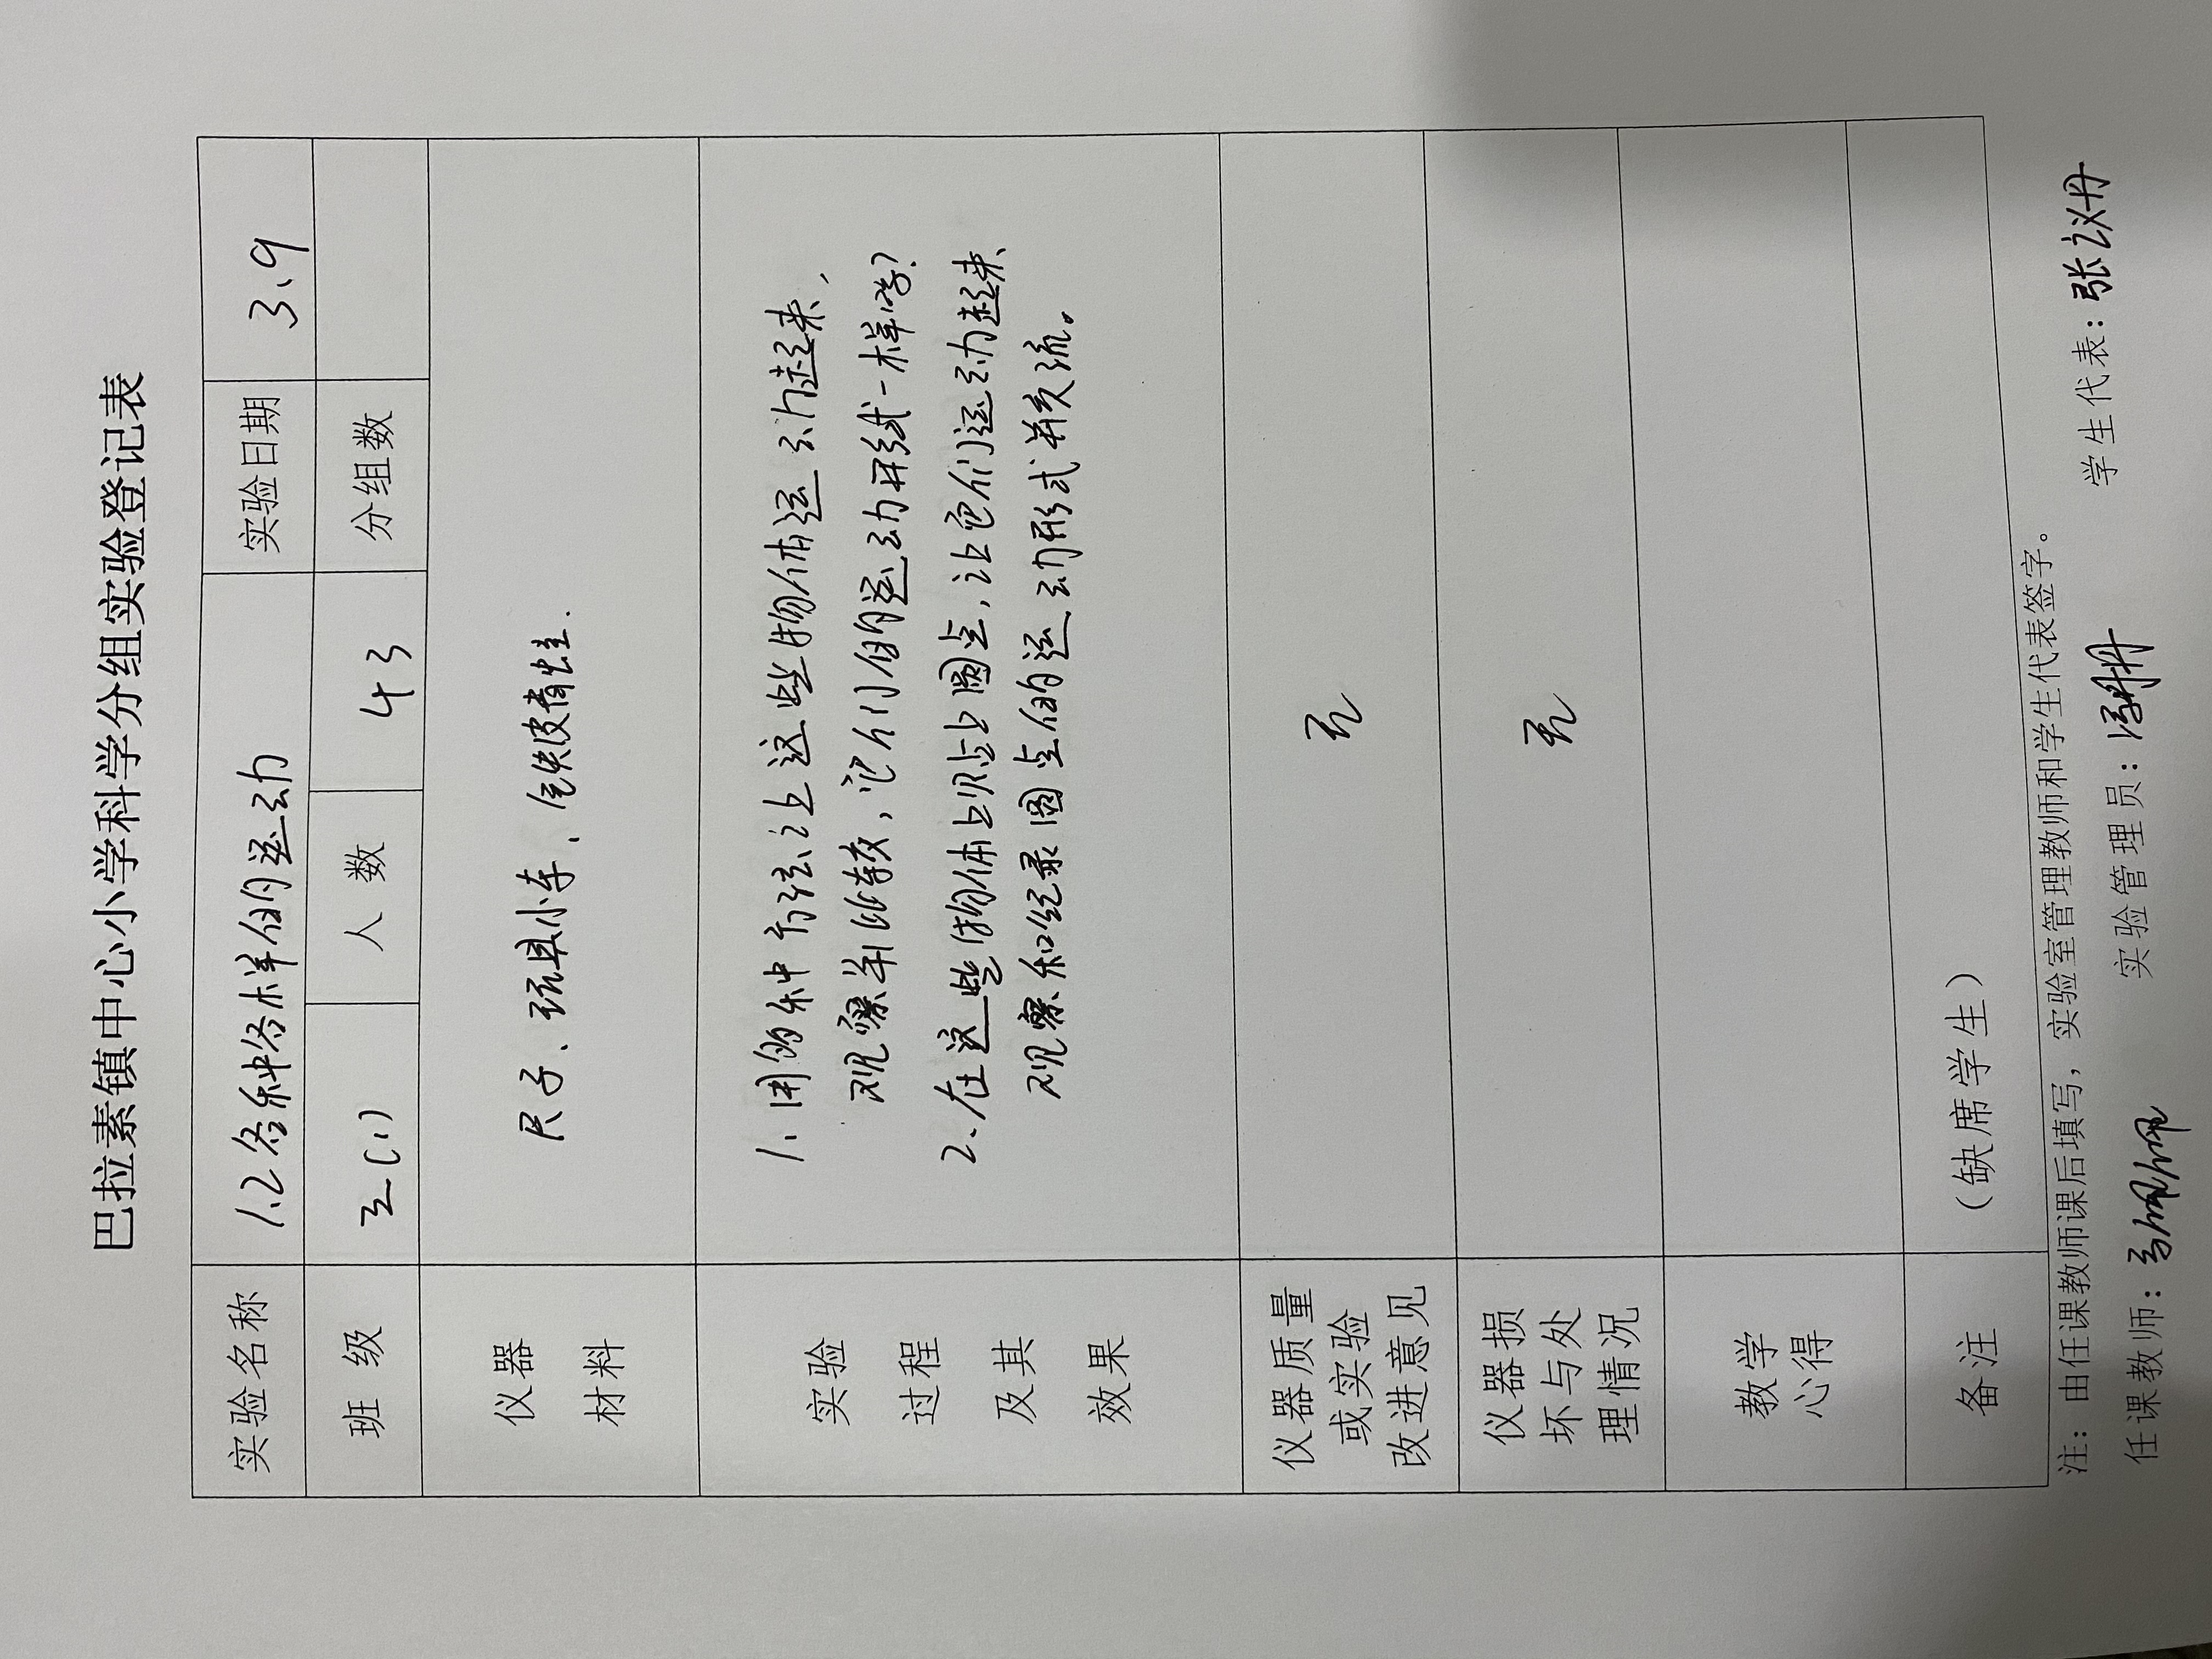 巴拉素镇中心小学科学分组实验登记表
实验名称 1.2各种各样的运动 实验日期 3.9
班级 三(1) 人数 43 分组数
仪器
材料
尺子、玩具小车、铁皮青蛙.
实验
过程
及其
效果
1.用多种方法让这些物体运动起来,
观察并比较,它们的运动形式一样吗?
2.在这些物体上贴上圆点,让它们运动起来
观察和纪录圆点的运动形式并交流。
仪器质量
或实验
改进意见
无
仪器损
坏与处
理情况
无
教学
心得
备注 (缺席学生)
注:由任课教师课后填写,实验室管理教师和学生代表签字。
任课教师: 实验管理员: 学生代表:张